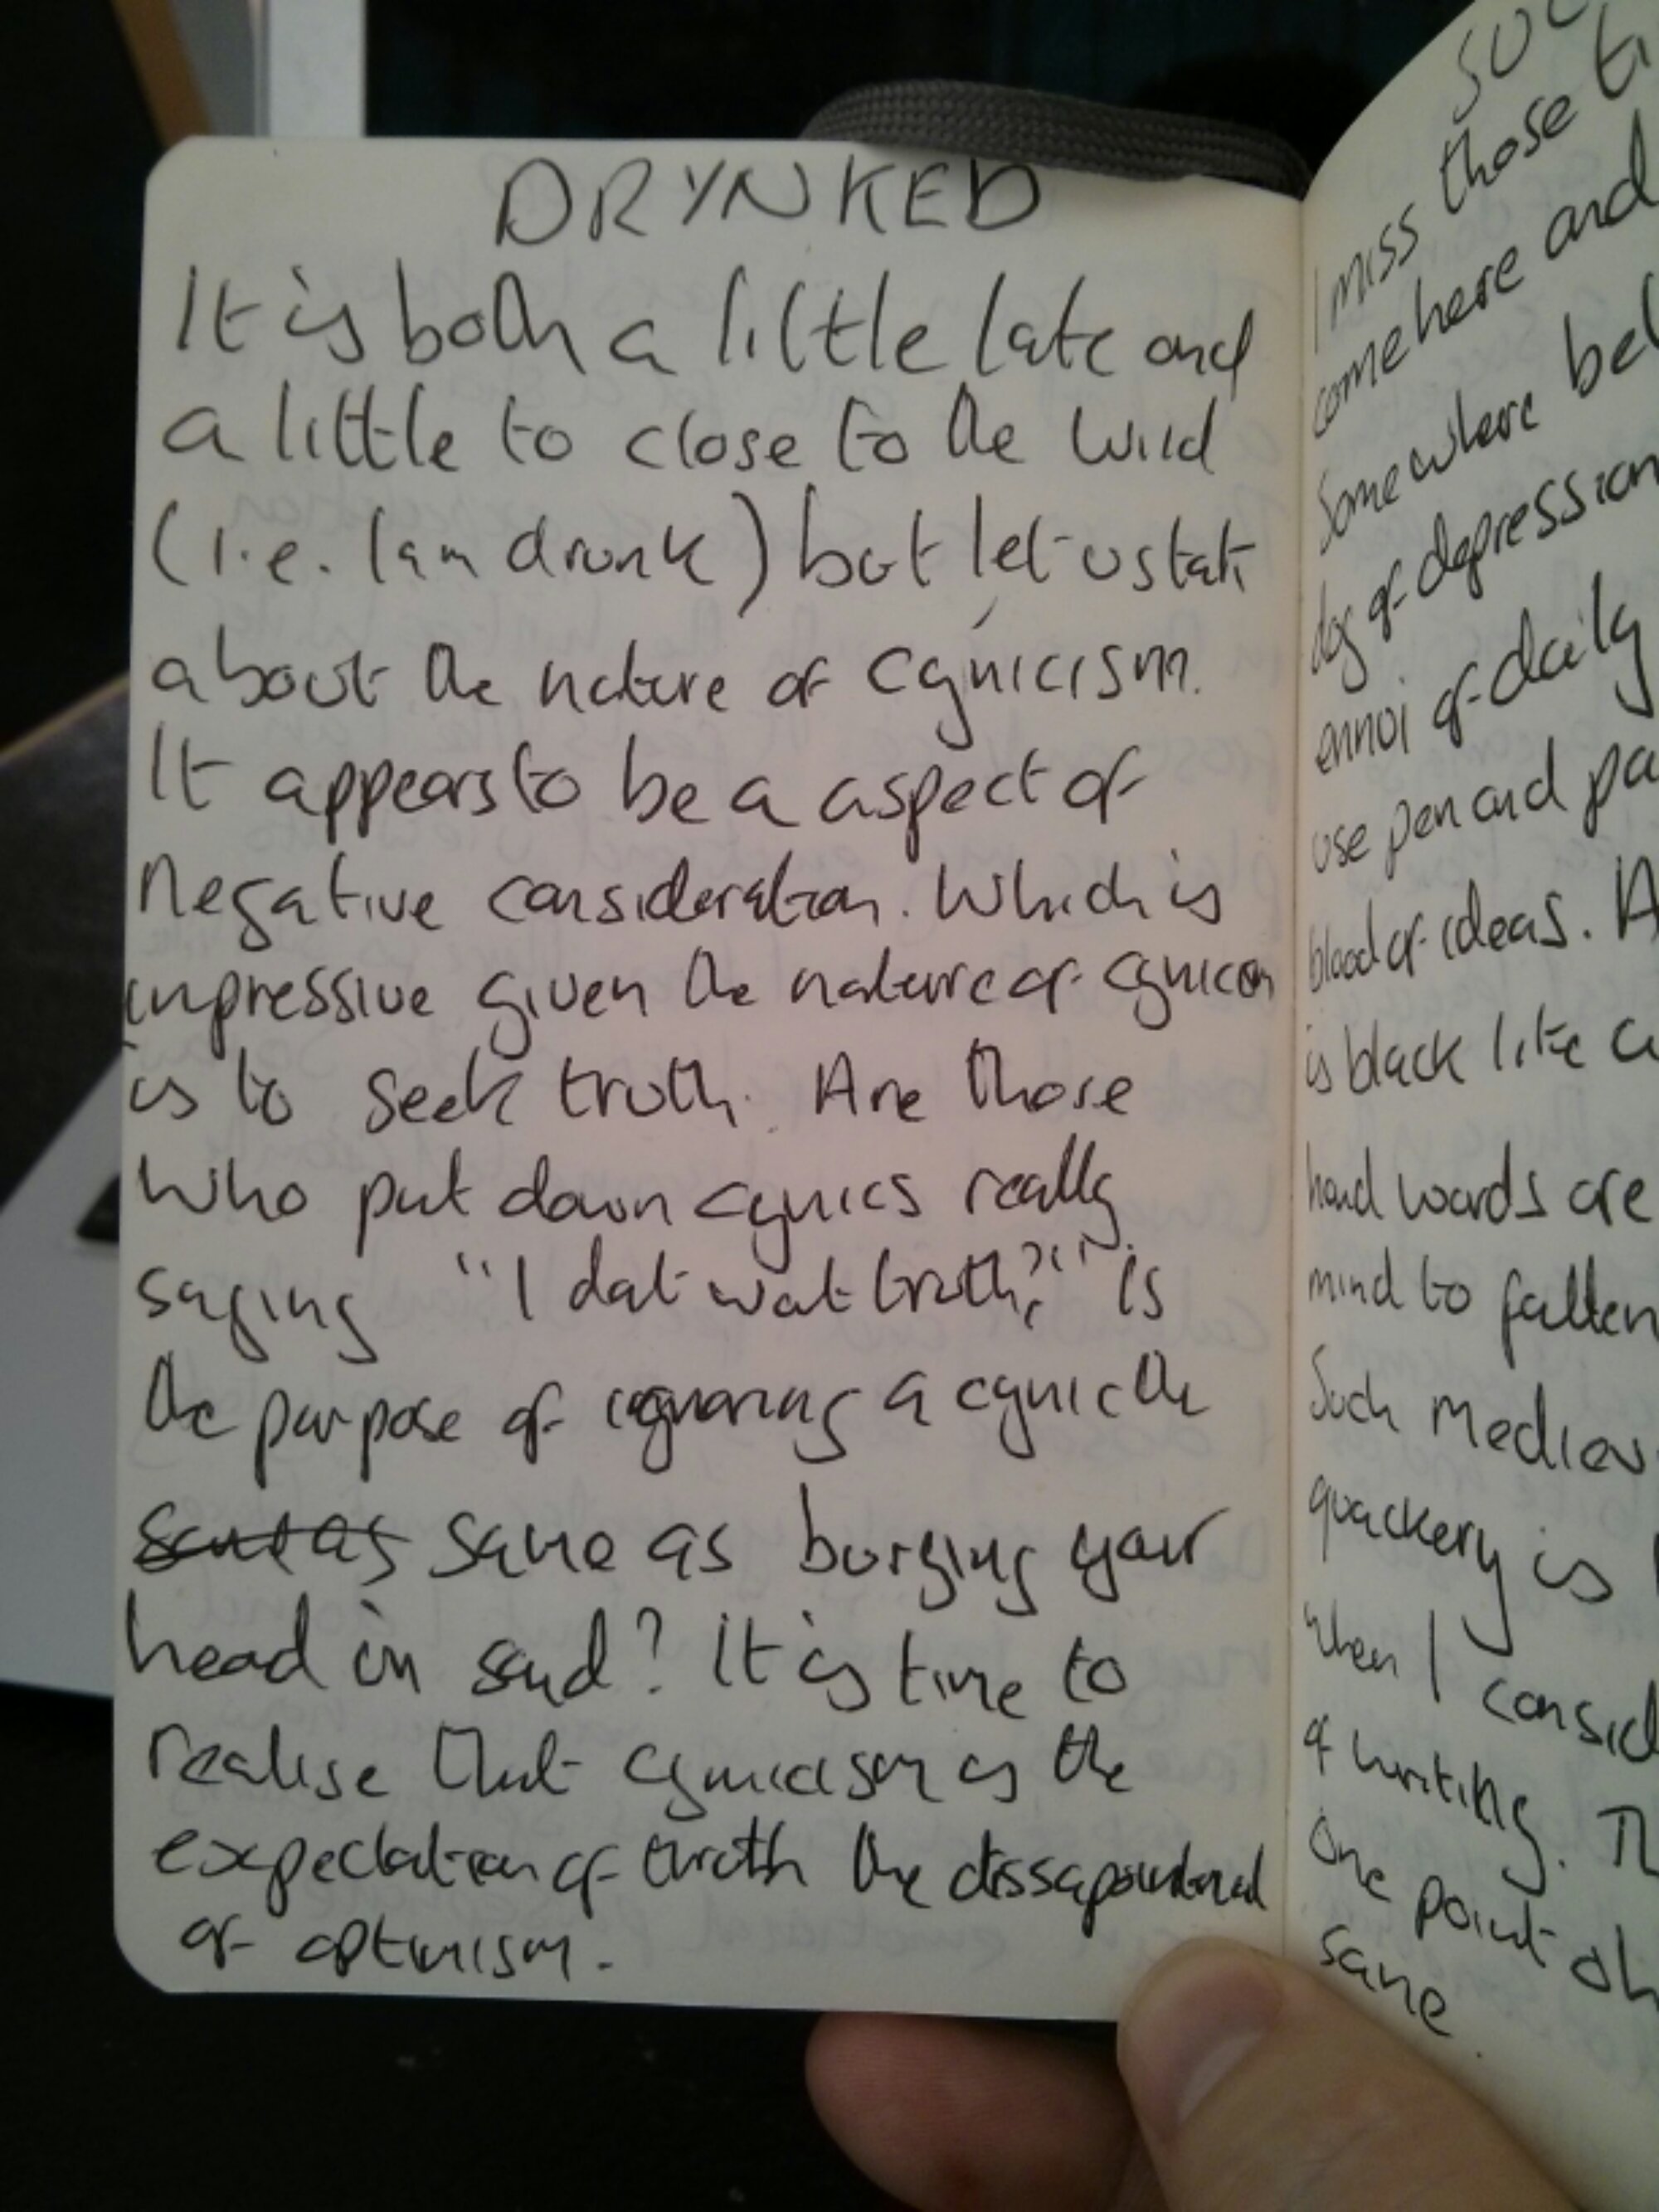 DRYNKED
It is both a little late and
a little to close to the wild
(i.e. I am drunk) but let us talk
about the nature of cynicism.
It appears to be a aspect of
negative consideration. Which is
impressive given the nature of
is to seek truth. Are those
who put down cynics really
saying "I dat wat truth?" Is
the purpose of ignoring a cynic the
same as same as burying your
head in sand? It is time to
realise that cynicism is the
expectation of truth the
of optimism.
I miss those
come here and
somewhere
dog of depression
ennoi of daily
use pen and
blood of ideas.
is black like
hand words are
mind to fallen
Such
quackery is
when I
of writing.
One point
same.